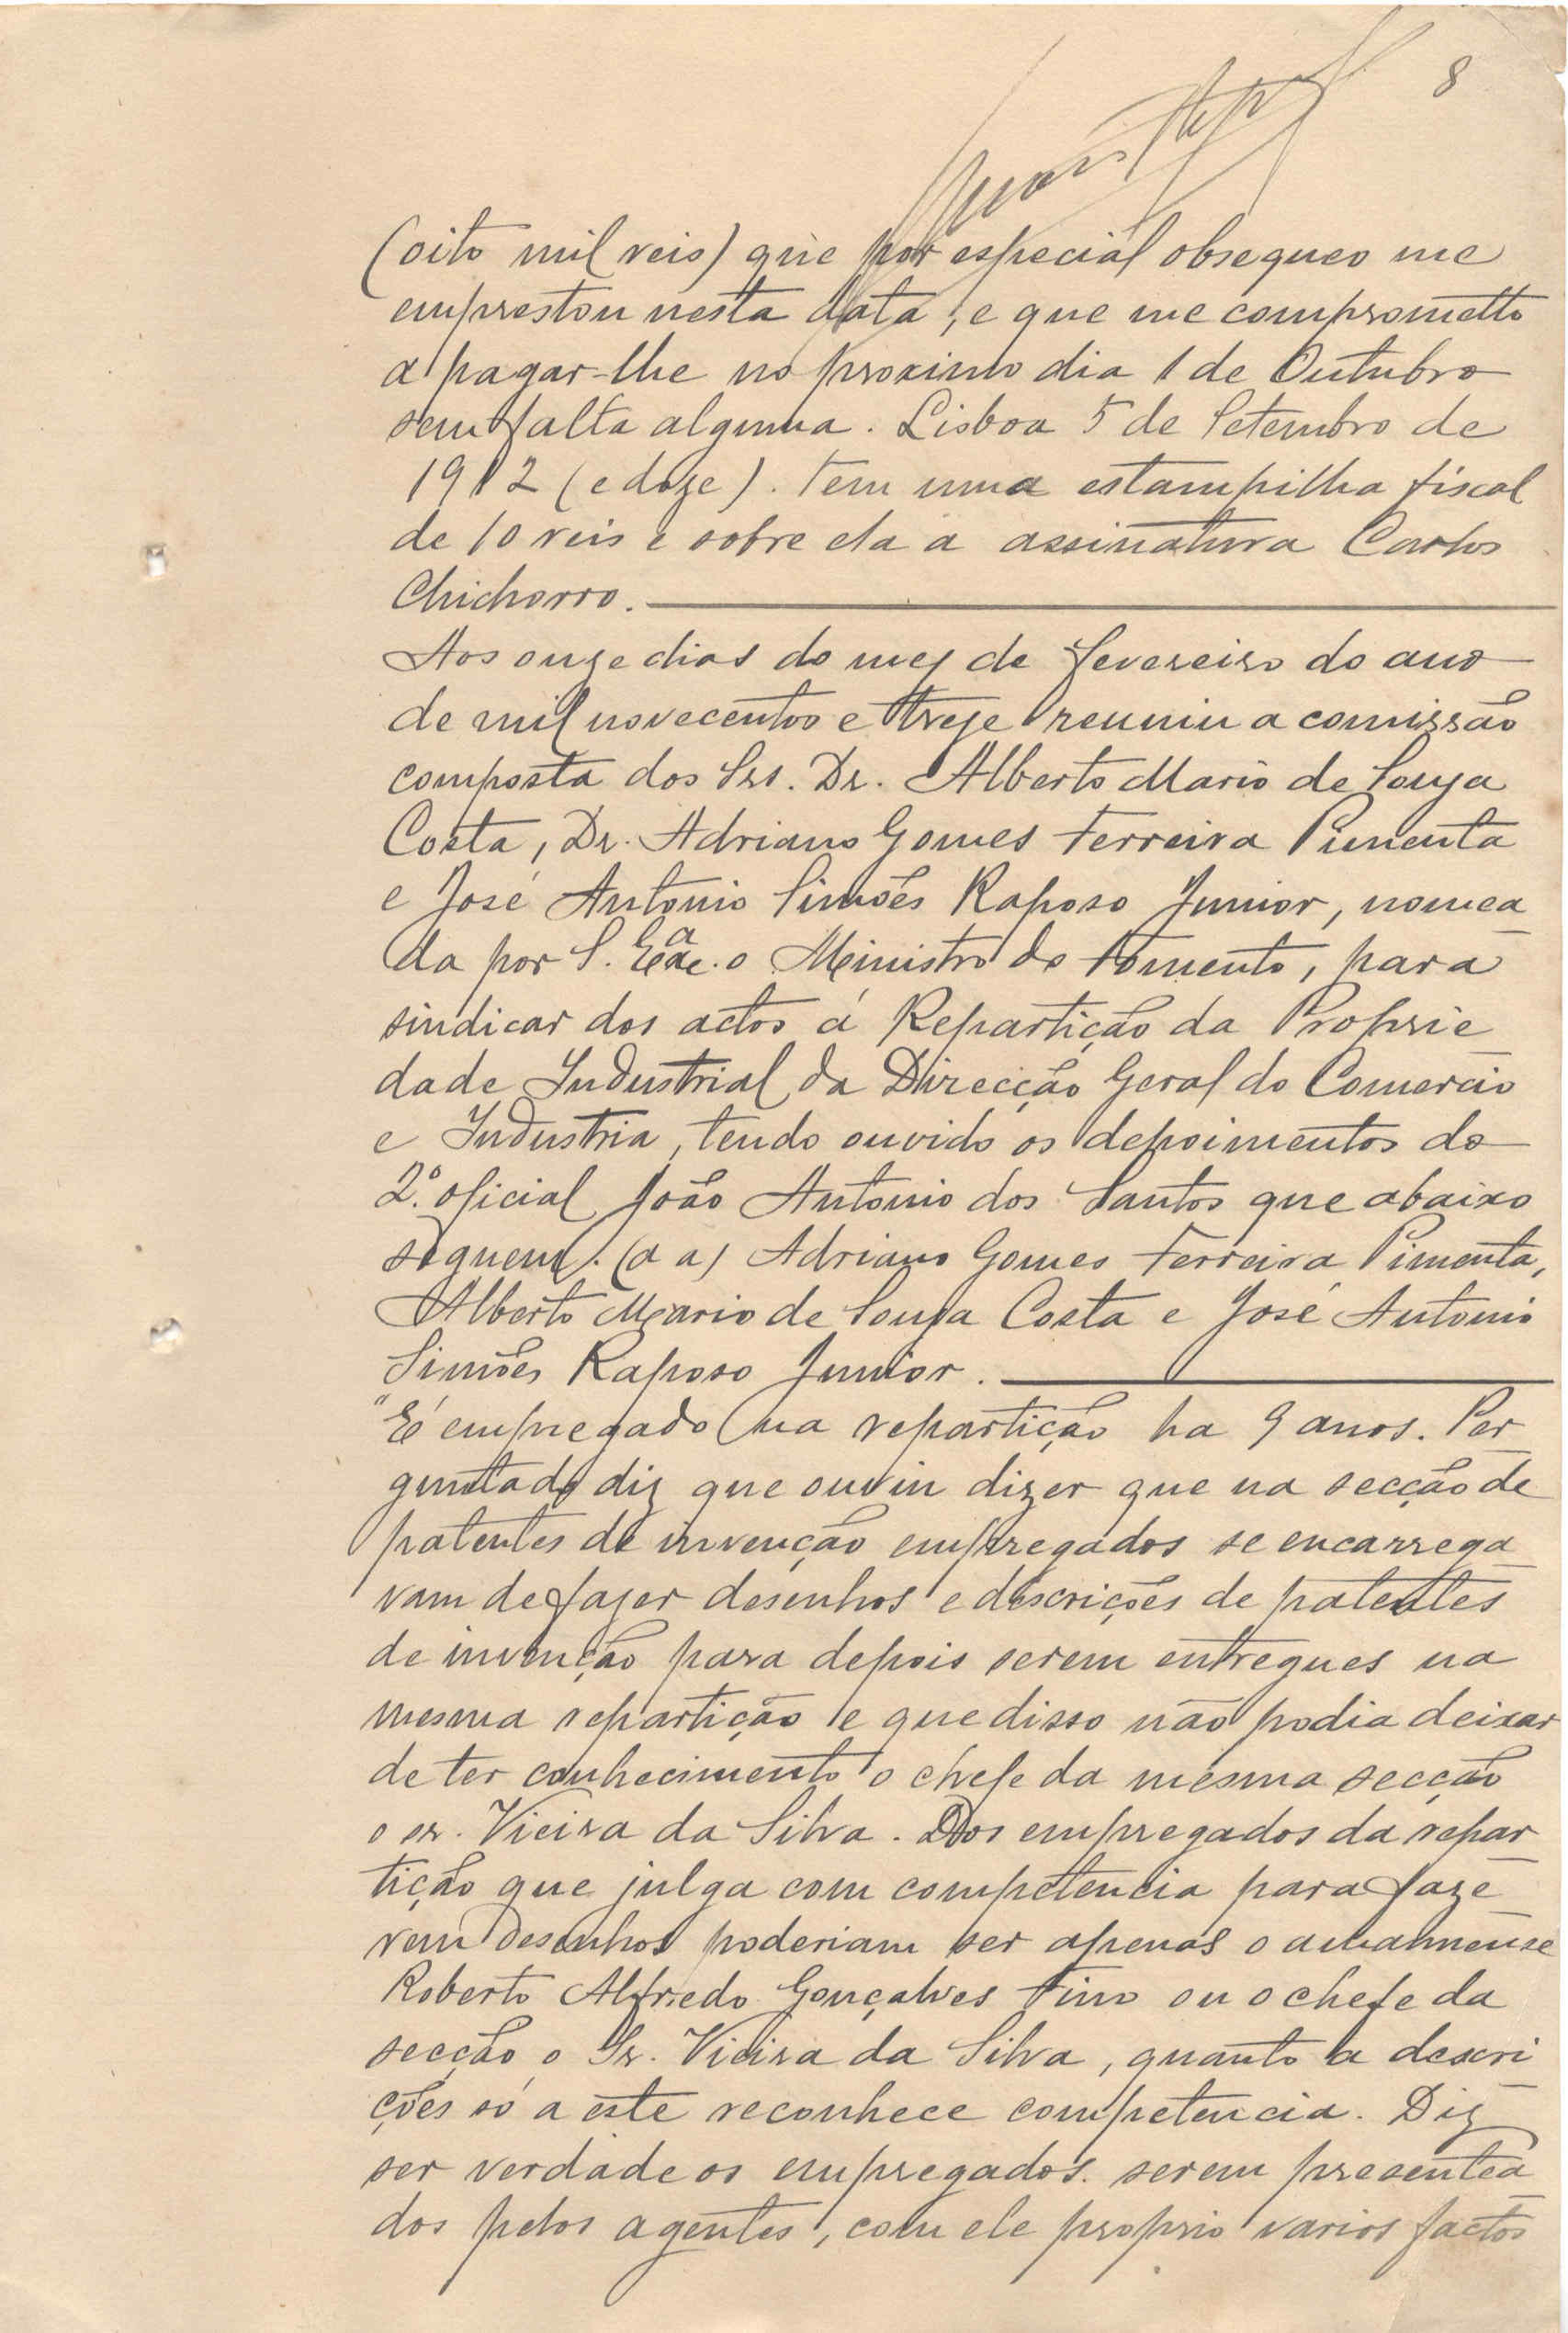 8
(oito mil reis) que por especial obsequeo me
emprestou nesta data, e que me comprometto
a pagar-lhe no proximo dia 1 de Outubro
sem falta alguma. Lisboa 5 de Setembro de
1912 (e doze). Tem uma estampilha fiscal
de 10 reis e sobre ela a assinatura Carlos
Chichorro.
Aos onze dias do mez de fevereiro do ano
de mil novecentos e treze reuniu a comissão
composta dos Srs. Dr. Alberto Mario de Souza
Costa, Dr. Adriano Gomes Ferreira Pimenta
e José Antonio Simões Raposo Junior, nomea
da por S. Exª. o Ministro do Fomento, para
sindicar dos actos á Repartição da Proprie
dade Industrial da Direcção Geral do Comercio
e Industria, tendo ouvido os depoimentos do
2.º oficial João Antonio dos Santos que abaixo
seguem. (a a) Adriano Gomes Ferreira Pimenta,
Alberto Mario de Souza Costa e José Antonio
Simões Raposo Junior.
"É empregado na repartição ha 9 anos. Per
guntado diz que ouviu dizer que na secção de
patentes de invenção empregados se encarrega
vam de fazer desenhos e descrições de patentes
de invenção para depois serem entregues na
mesma repartição e que disso não podia deixar
de ter conhecimento o chefe da mesma secção
o sr. Vieira da Silva. Dos empregados da repar
tição que julga com competencia para faze
rem desenhos poderiam ser apenas o amanuense
Roberto Alfredo Gonçalves Tino ou o chefe da
secção o Sr. Vieira da Silva, quanto a descri
ções só a este reconhece competencia. Diz
ser verdade os empregados serem presentea
dos pelos agentes, com ele proprio varios factos